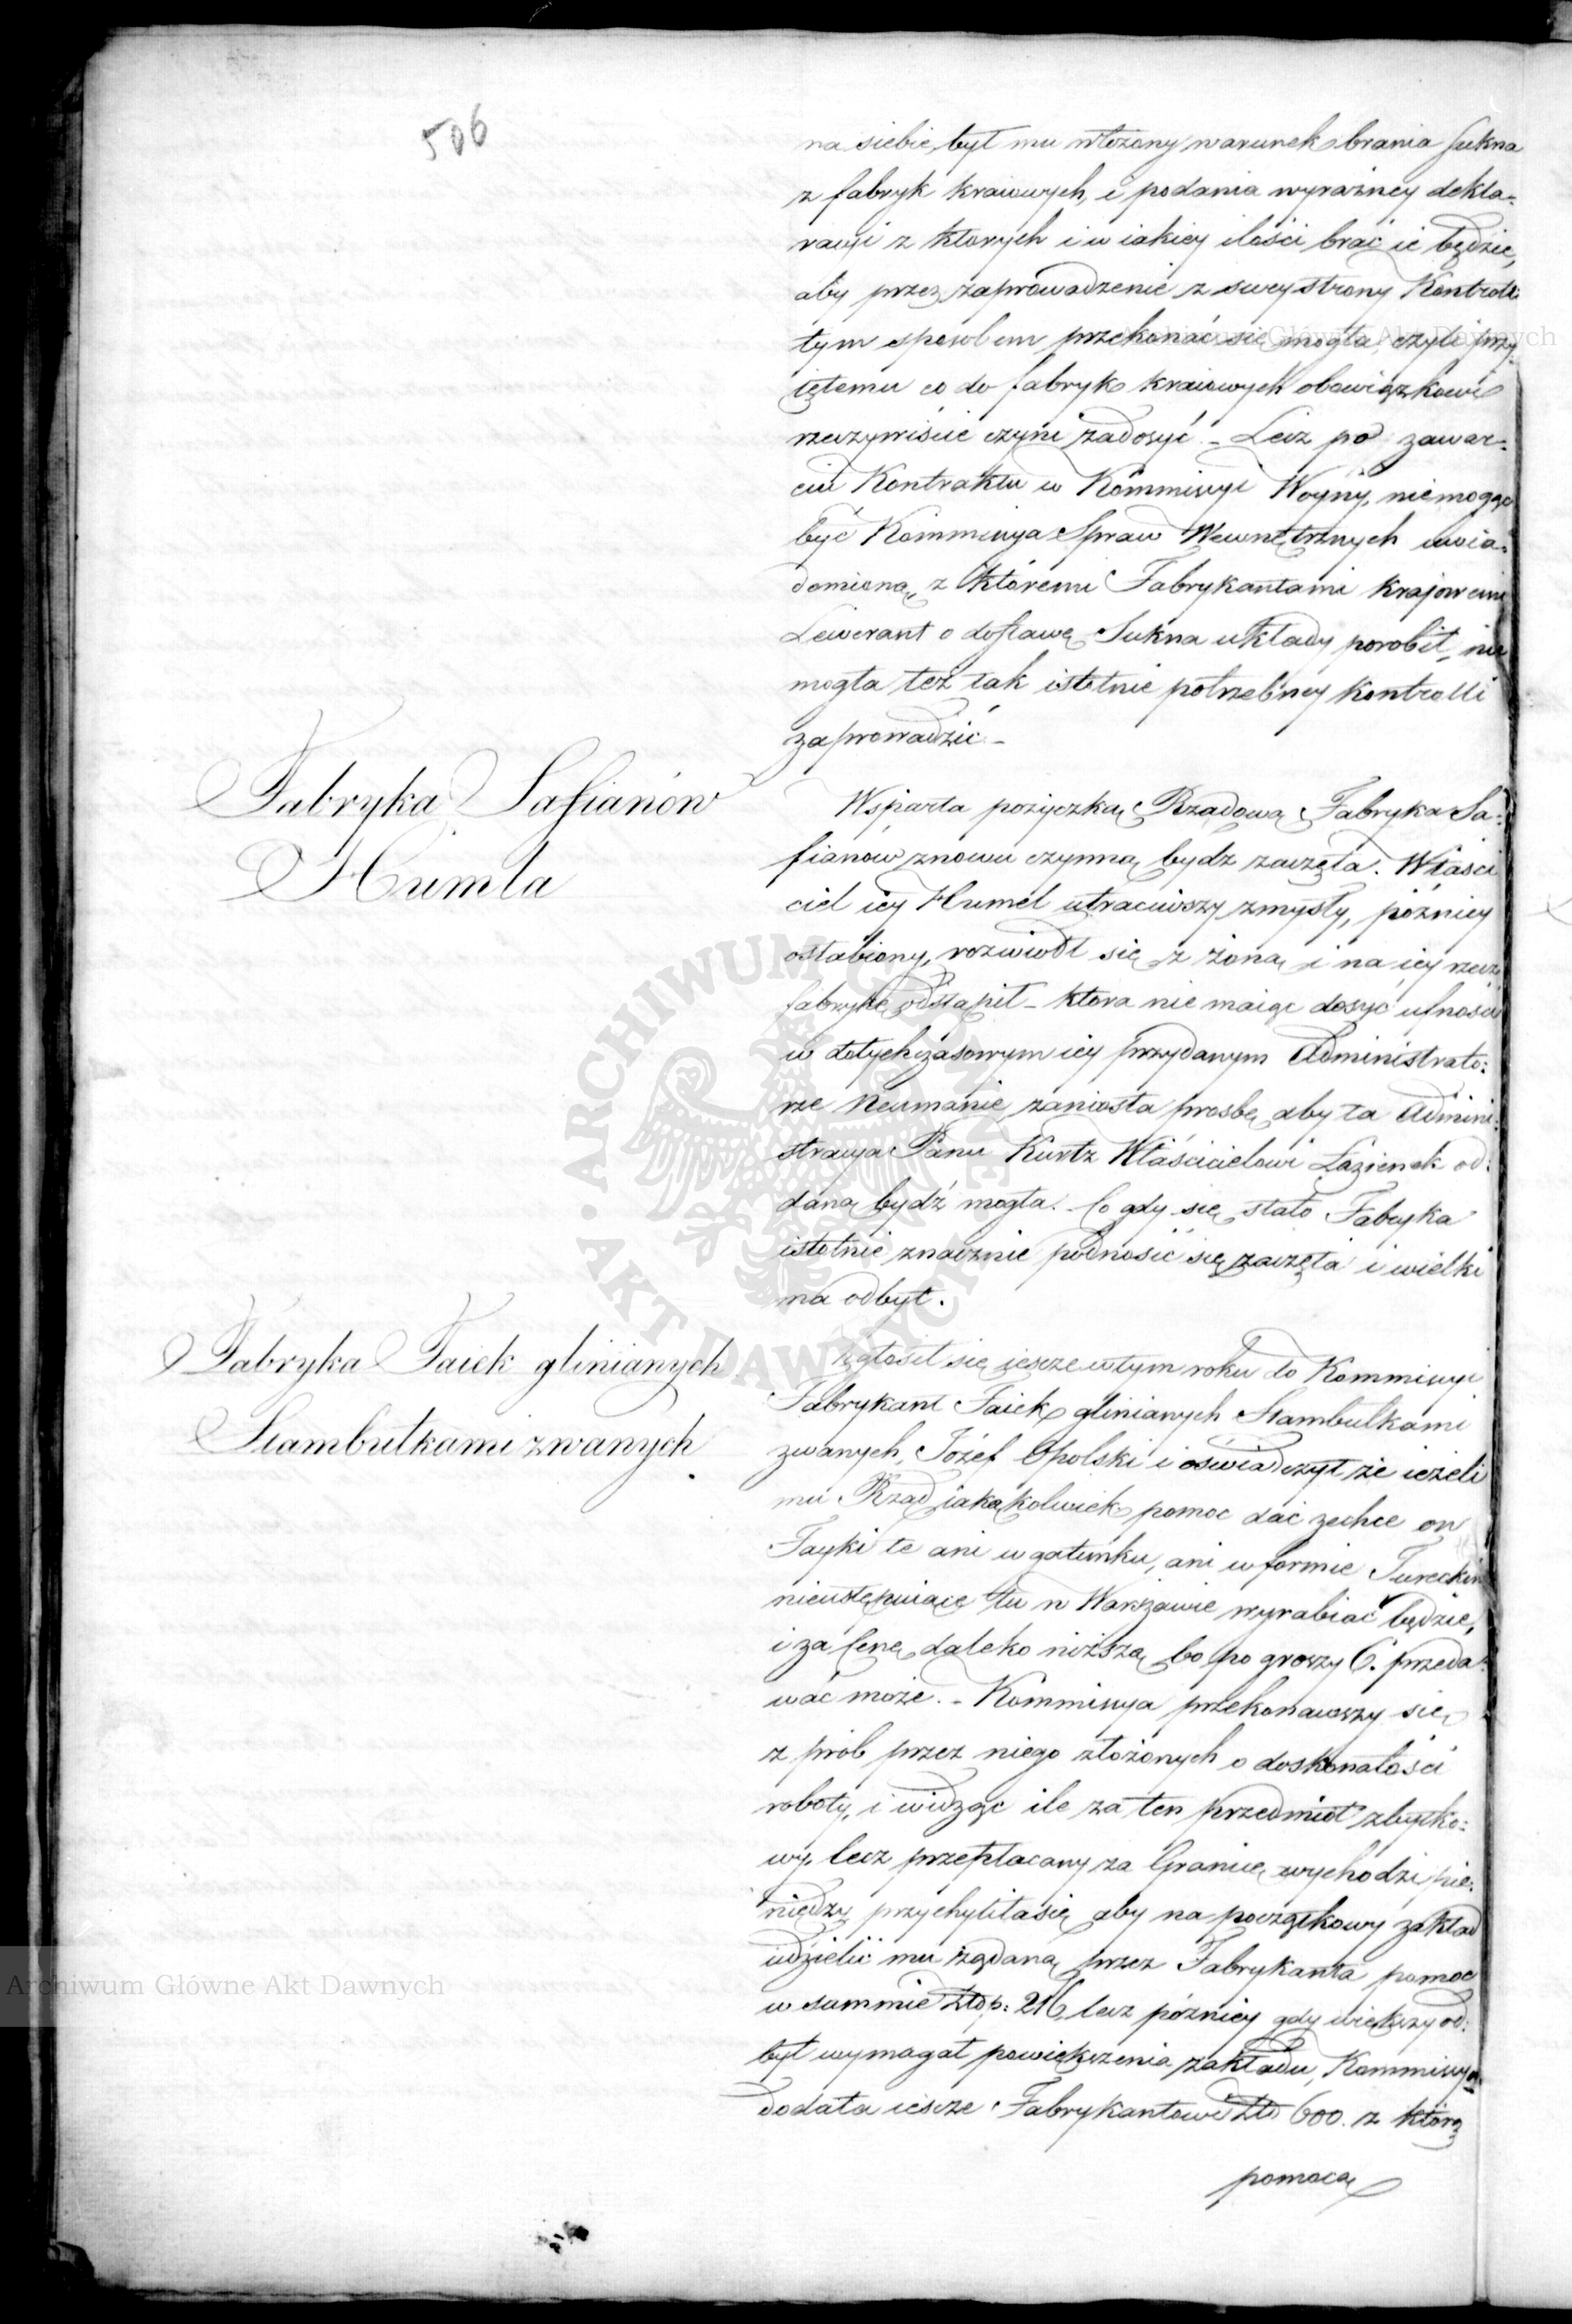 506
na siebie, był mu włożony warunek brania sukna
z fabryk kraiowych, i podania wyraźney dekla-
racyi z których i w iakiey ilości brać ie będzie,
aby przez zaprowadzenie z swey strony Kontroli
tym sposobem przekonać się mogła, czyli przy-
iętemu co do fabryk kraiowych obowiązkowi
rzeczywiście czyni zadosyć. - Lecz po zawar-
ciu Kontraktu w Kommissyi Woyny, nie mogąc
być Kommissya Spraw Wewnętrznych uwia-
domioną, z któremi Fabrykantami krajowemi
Liwerant o dostawę Sukna układy porobił, nie
mogła też tak istotnie potrzebney kontrolli
zaprowadzić. -
Fabryka Safianów
Humla
Wsparta pożyczką Rządową Fabryka Sa-
fianów znowu czynną bydz zaczęła. Właści
ciel iey Humel utraciwszy zmysły, późniey
osłabiony, rozwiodł się z żoną i na iey rzecz
fabrykę odstąpił - która nie maiąc dosyć ufności
w dotychczasowym iey przydanym Administrato-
rze Neumanie, zaniosła prosbę, aby ta Admini-
stracya Panu Kurtz Właścicielowi Łazienek od-
daną bydź mogła. Co gdy się stało Fabryka
istotnie znacznie podnosić się zaczęła i wielki
ma odbyt.
Fabryka Faiek glinianych
Stambułkami zwanych.
Zgłosił się iescze w tym roku do Kommissyi
Fabrykant Faiek glinianych Stambulkami
zwanych, Józef Opolski i oświadczył że ieżeli
mu Rząd iakąkolwiek pomoc dać zechce on
Fayki te ani w gatunku, ani w formie Tureckim
nieustępuiące tu w Warszawie wyrabiać będzie,
i za Cenę daleko niższą bo po groszy 6. przeda-
wać może. - Kommissya przekonawszy się
z prób przez niego złożonych o doskonałości
roboty, i widząc ile za ten przedmiot zbytko-
wy, lecz przepłacany za Granicę wychodzi pie-
niędzy, przychyliła się aby na początkowy zakład
udzielić mu żądaną przez Fabrykanta pomoc
w summie Złdp: 216, lecz późniey gdy większy od-
byt wymagał powiększenia zakładu, Kommissya
dodała iescze Fabrykantowi Złd 600. z którą
pomocą